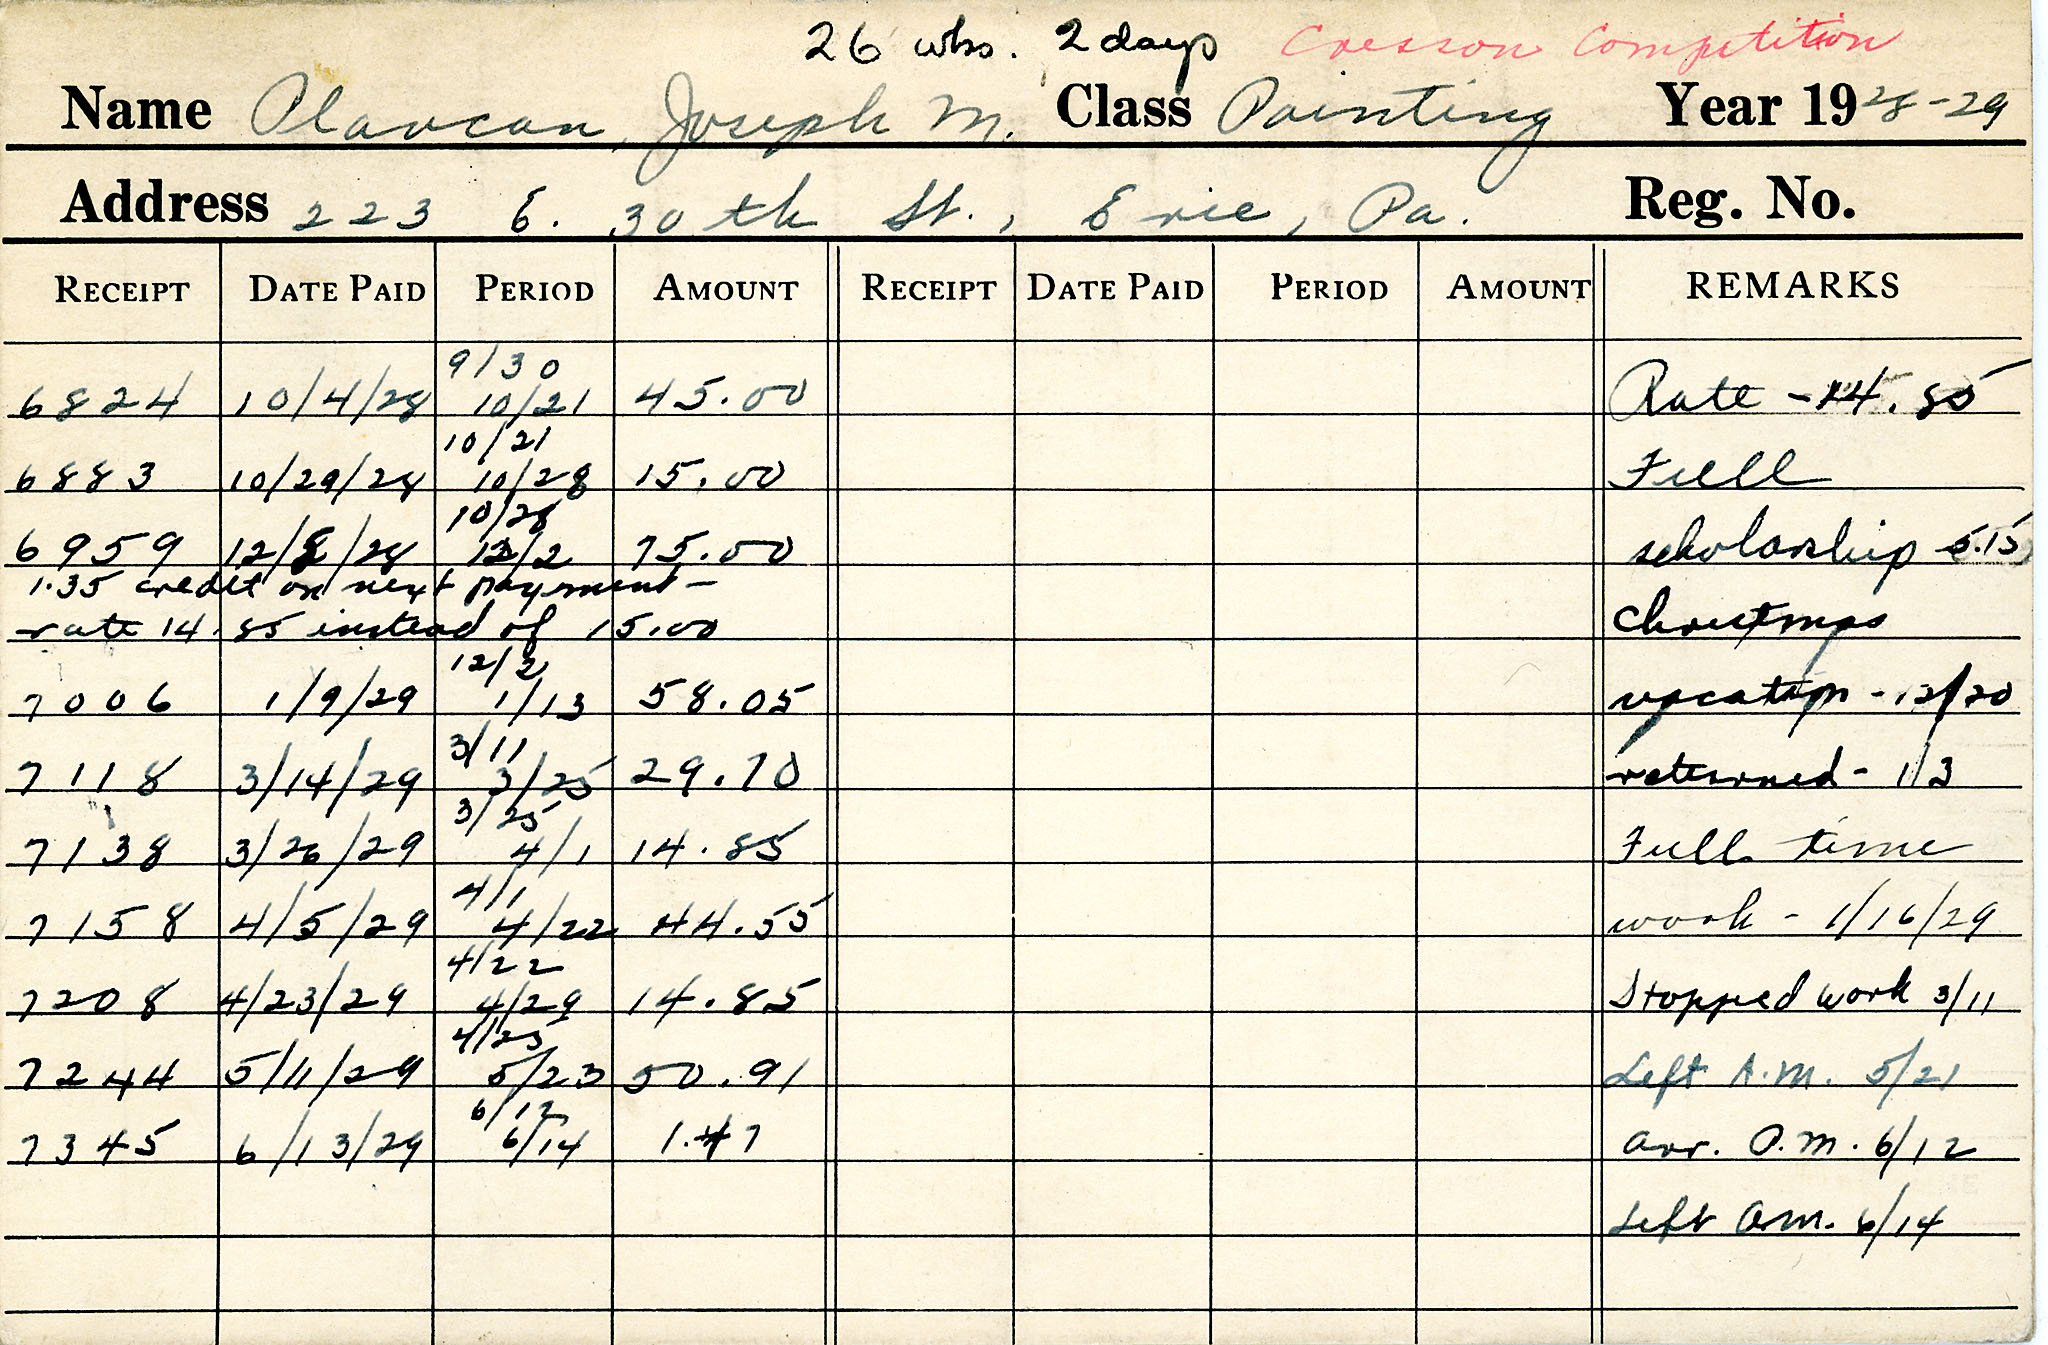 26 wks. 2 days Cresson Competition
Name Plavcan, Joseph M. Class Painting Year 1928-29
Address 223 E. 30th St., Erie, Pa. Reg. No.
RECEIPT DATE PAID PERIOD AMOUNT RECEIPT DATE PAID PERIOD AMOUNT REMARKS
9/30
6824 10/4/28 10/21 45.00 Rate - 14.85
10/21
6883 10/29/28 10/28 15.00 Full
10/28
6959 12/8/28 12/2 75.00 scholarship 5.15
1.35 credit on next payment -
rate 14.85 instead of 15.00 Christmas
12/2
7006 1/9/29 1/13 58.05 vacation - 12/20
3/11
7118 3/14/29 3/25 29.70 returned - 1/3
3/25
7138 3/26/29 4/1 14.85 Full time
4/1
7158 4/5/29 4/22 44.55 work - 1/16/29
4/22
7208 4/23/29 4/29 14.85 Stopped work 3/11
7244 5/11/29 5/23 50.91 Left A.M. 5/21
6/12
7345 6/13/29 6/14 1.47 arr. P.M. 6/12
Left a.m. 6/14